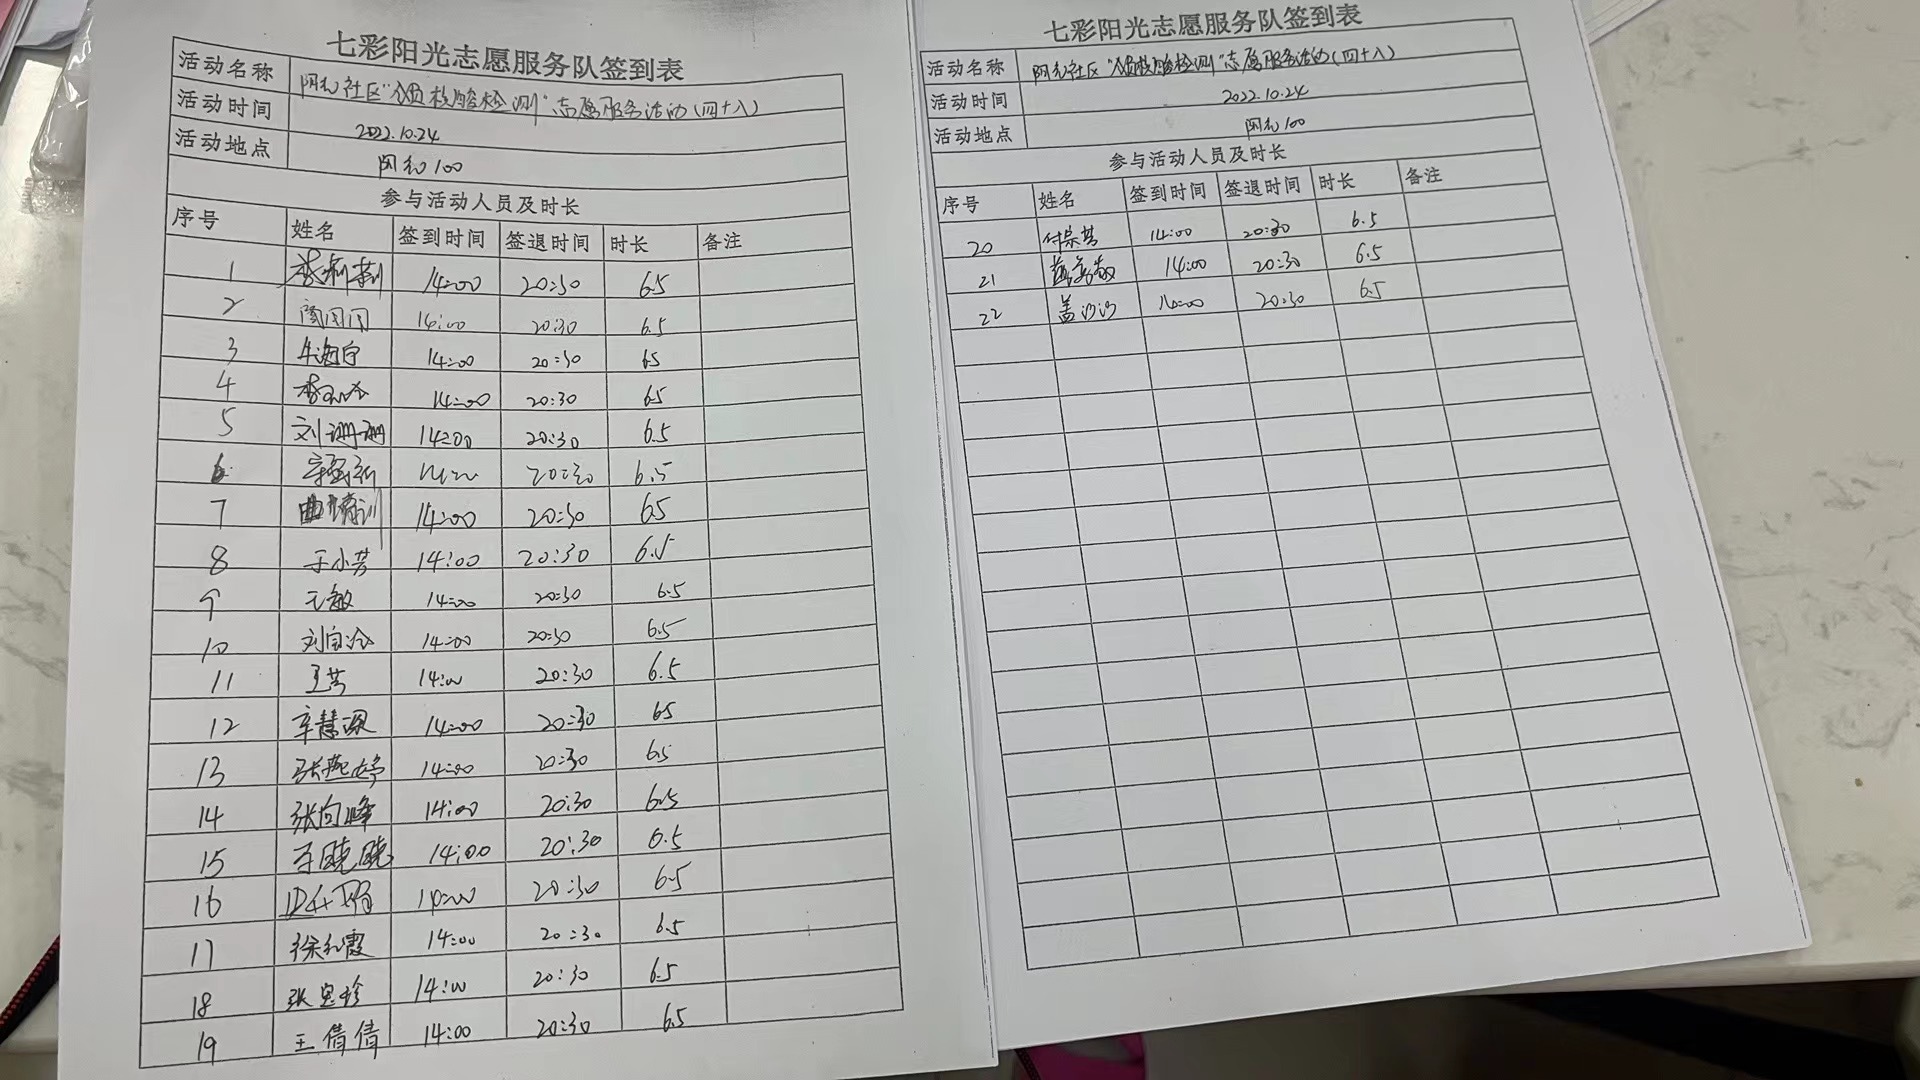 七彩阳光志愿服务队签到表
活动名称 社区"核酸检测"志愿服务活动(四十八)
活动时间 2022.10.24
活动地点 100
参与活动人员及时长
序号 姓名 签到时间 签退时间 时长 备注
1 14:00 20:30 6.5
2 14:00 20:30 6.5
3 14:00 20:30 6.5
4 14:00 20:30 6.5
5 刘珊珊 14:00 20:30 6.5
6 14:00 20:30 6.5
7 14:00 20:30 6.5
8 于小芳 14:00 20:30 6.5
9 14:00 20:30 6.5
10 14:00 20:30 6.5
11 14:00 20:30 6.5
12 14:00 20:30 6.5
13 张燕婷 14:00 20:30 6.5
14 张向峰 14:00 20:30 6.5
15 晓晓 14:00 20:30 6.5
16 14:00 20:30 6.5
17 徐红霞 14:00 20:30 6.5
18 14:00 20:30 6.5
19 王倩倩 14:00 20:30 6.5
七彩阳光志愿服务队签到表
活动名称 社区"核酸检测"志愿服务活动(四十八)
活动时间 2022.10.24
活动地点 100
参与活动人员及时长
序号 姓名 签到时间 签退时间 时长 备注
20 14:00 20:30 6.5
21 14:00 20:30 6.5
22 盖沙沙 14:00 20:30 6.5